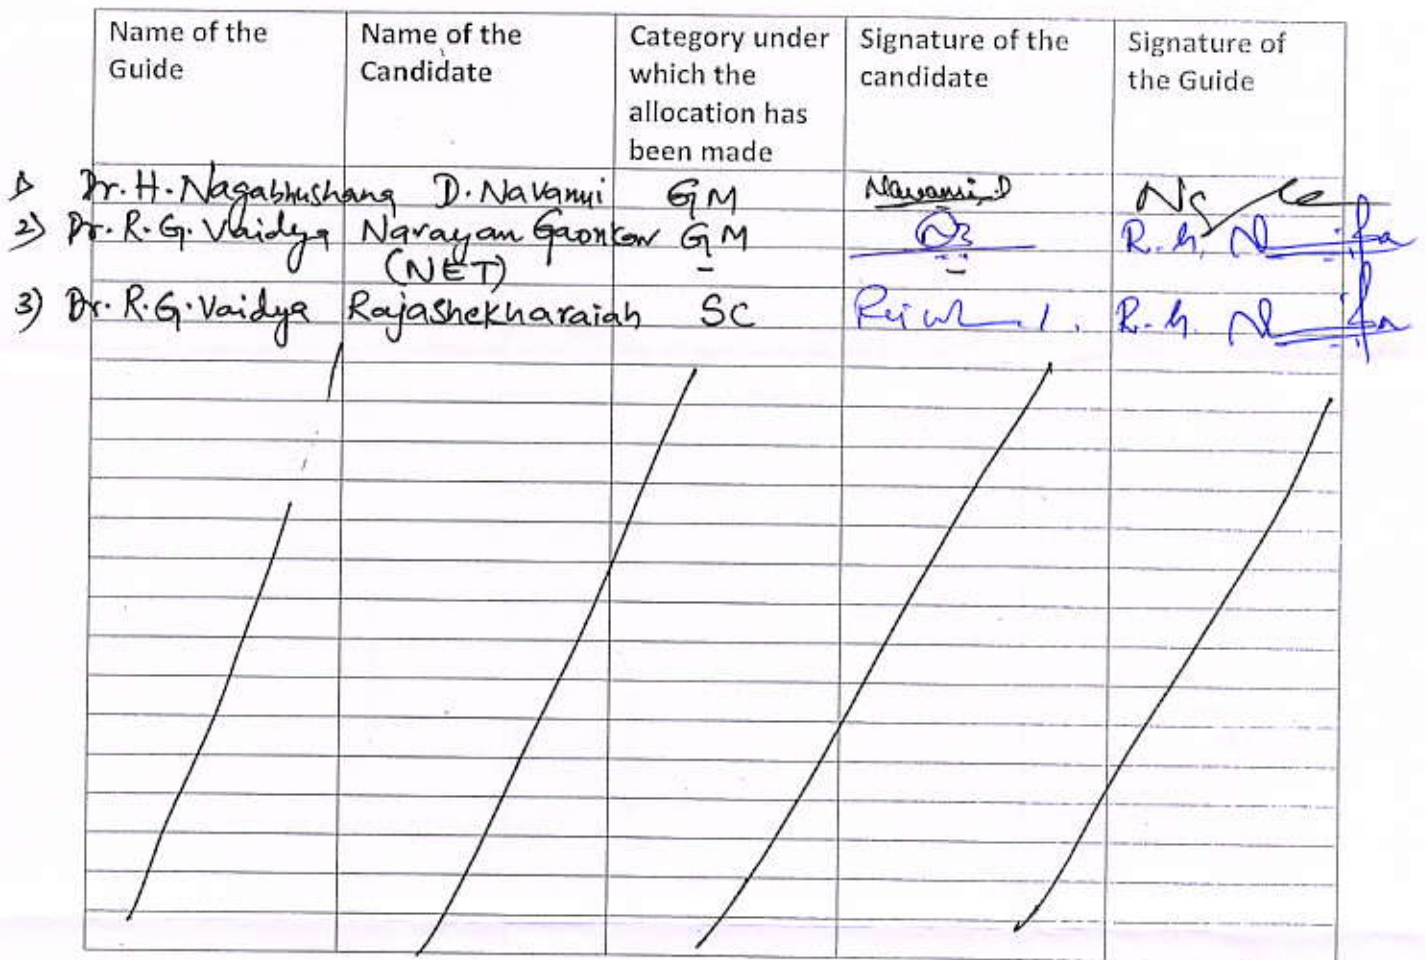 Name of the Guide
Name of the Candidate
Category under which the allocation has been made
Signature of the candidate
Signature of the Guide
1) Dr. H. Nagabhushana D. Navami GM Navami.D
2) Dr. R. G. Vaidya Narayan Gaonkar GM R. G.
(NET)
3) Dr. R. G. Vaidya Rajashekharaiah SC R. G.